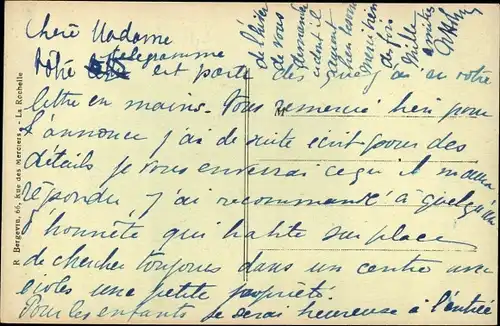 Chère Madame
Vôtre télégramme est parti dès que j'ai eu votre
lettre en mains. Vous remercie bien pour
l'annonce j'ai de suite écrit pour des
détails je vous enverrai ce qu'il m'aura
répondu j'ai recommandé à quelqu'un
d'honnête qui habite sur place
de chercher toujours dans un centre avec
écoles une petite propriété.
Pour les enfants je serai heureuse à l'entrée
de l'hiver
de vous
demander
dont il
auront
bien besoin
merci bien
de fois
Mille
amitiés
R. Bergevin, 66, Rue des Merciers - La Rochelle